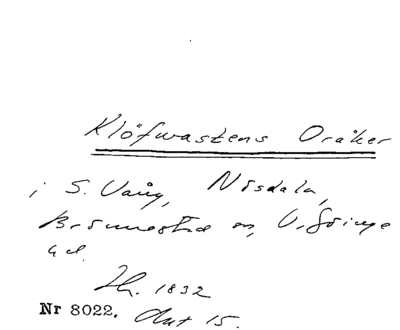 Klöfwastens Oråker
i S. Vång, Nosdala,
Brönnestad m, V. Göinge
hd.
Th. 1832
Nr 8022. Aut 15.